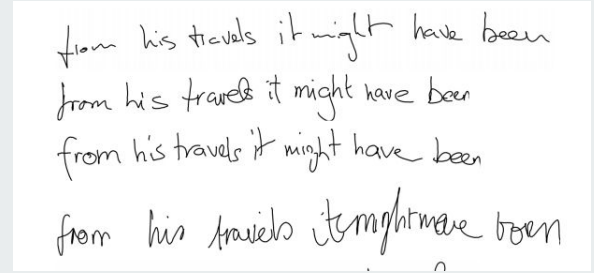 from his travels it might have been
from his travels it might have been
from his travels it might have been
from his travels it might have been